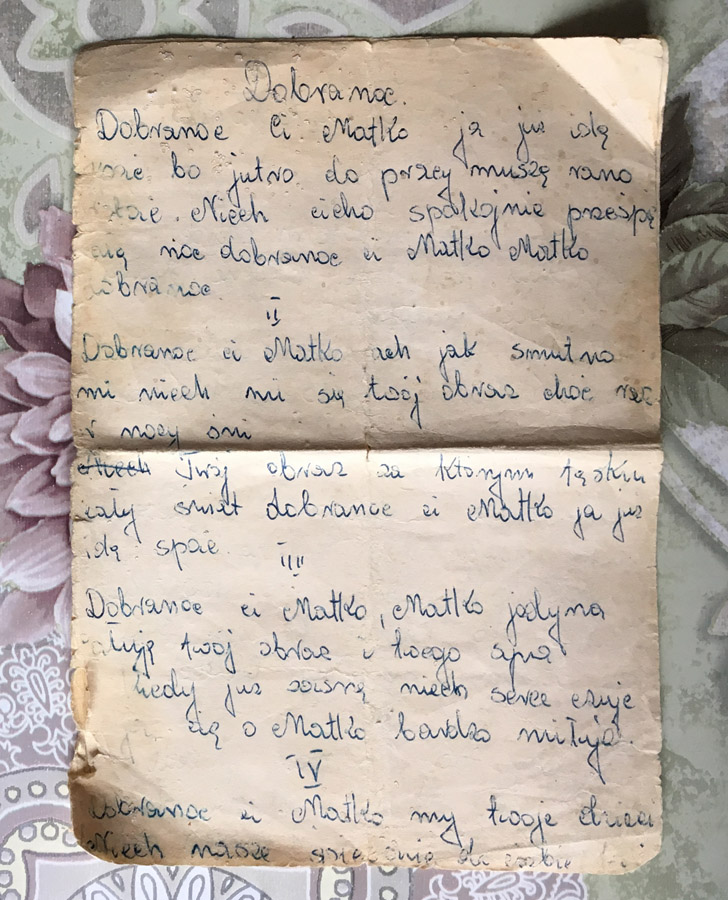 Dobranoc.
Dobranoc Ci Matko ja już idę
bo jutro do pracy muszę rano
Niech cicho spokojnie prześpię
noc dobranoc ci Matko Matko
dobranoc
II
Dobranoc ci Matko ach jak smutno
mi niech mi się twój obraz choć raz
w nocy śni
Niech Twój obraz za którym tęskni
cały świat dobranoc ci Matko ja już
idę spać.
III
Dobranoc ci Matko, Matko jedyna
twój obraz i twego syna
kiedy już zasnę niech serce czuje
cię o Matko bardzo miłuję.
IV
Dobranoc ci Matko my twoje dzieci
Niech nasze do ciebie